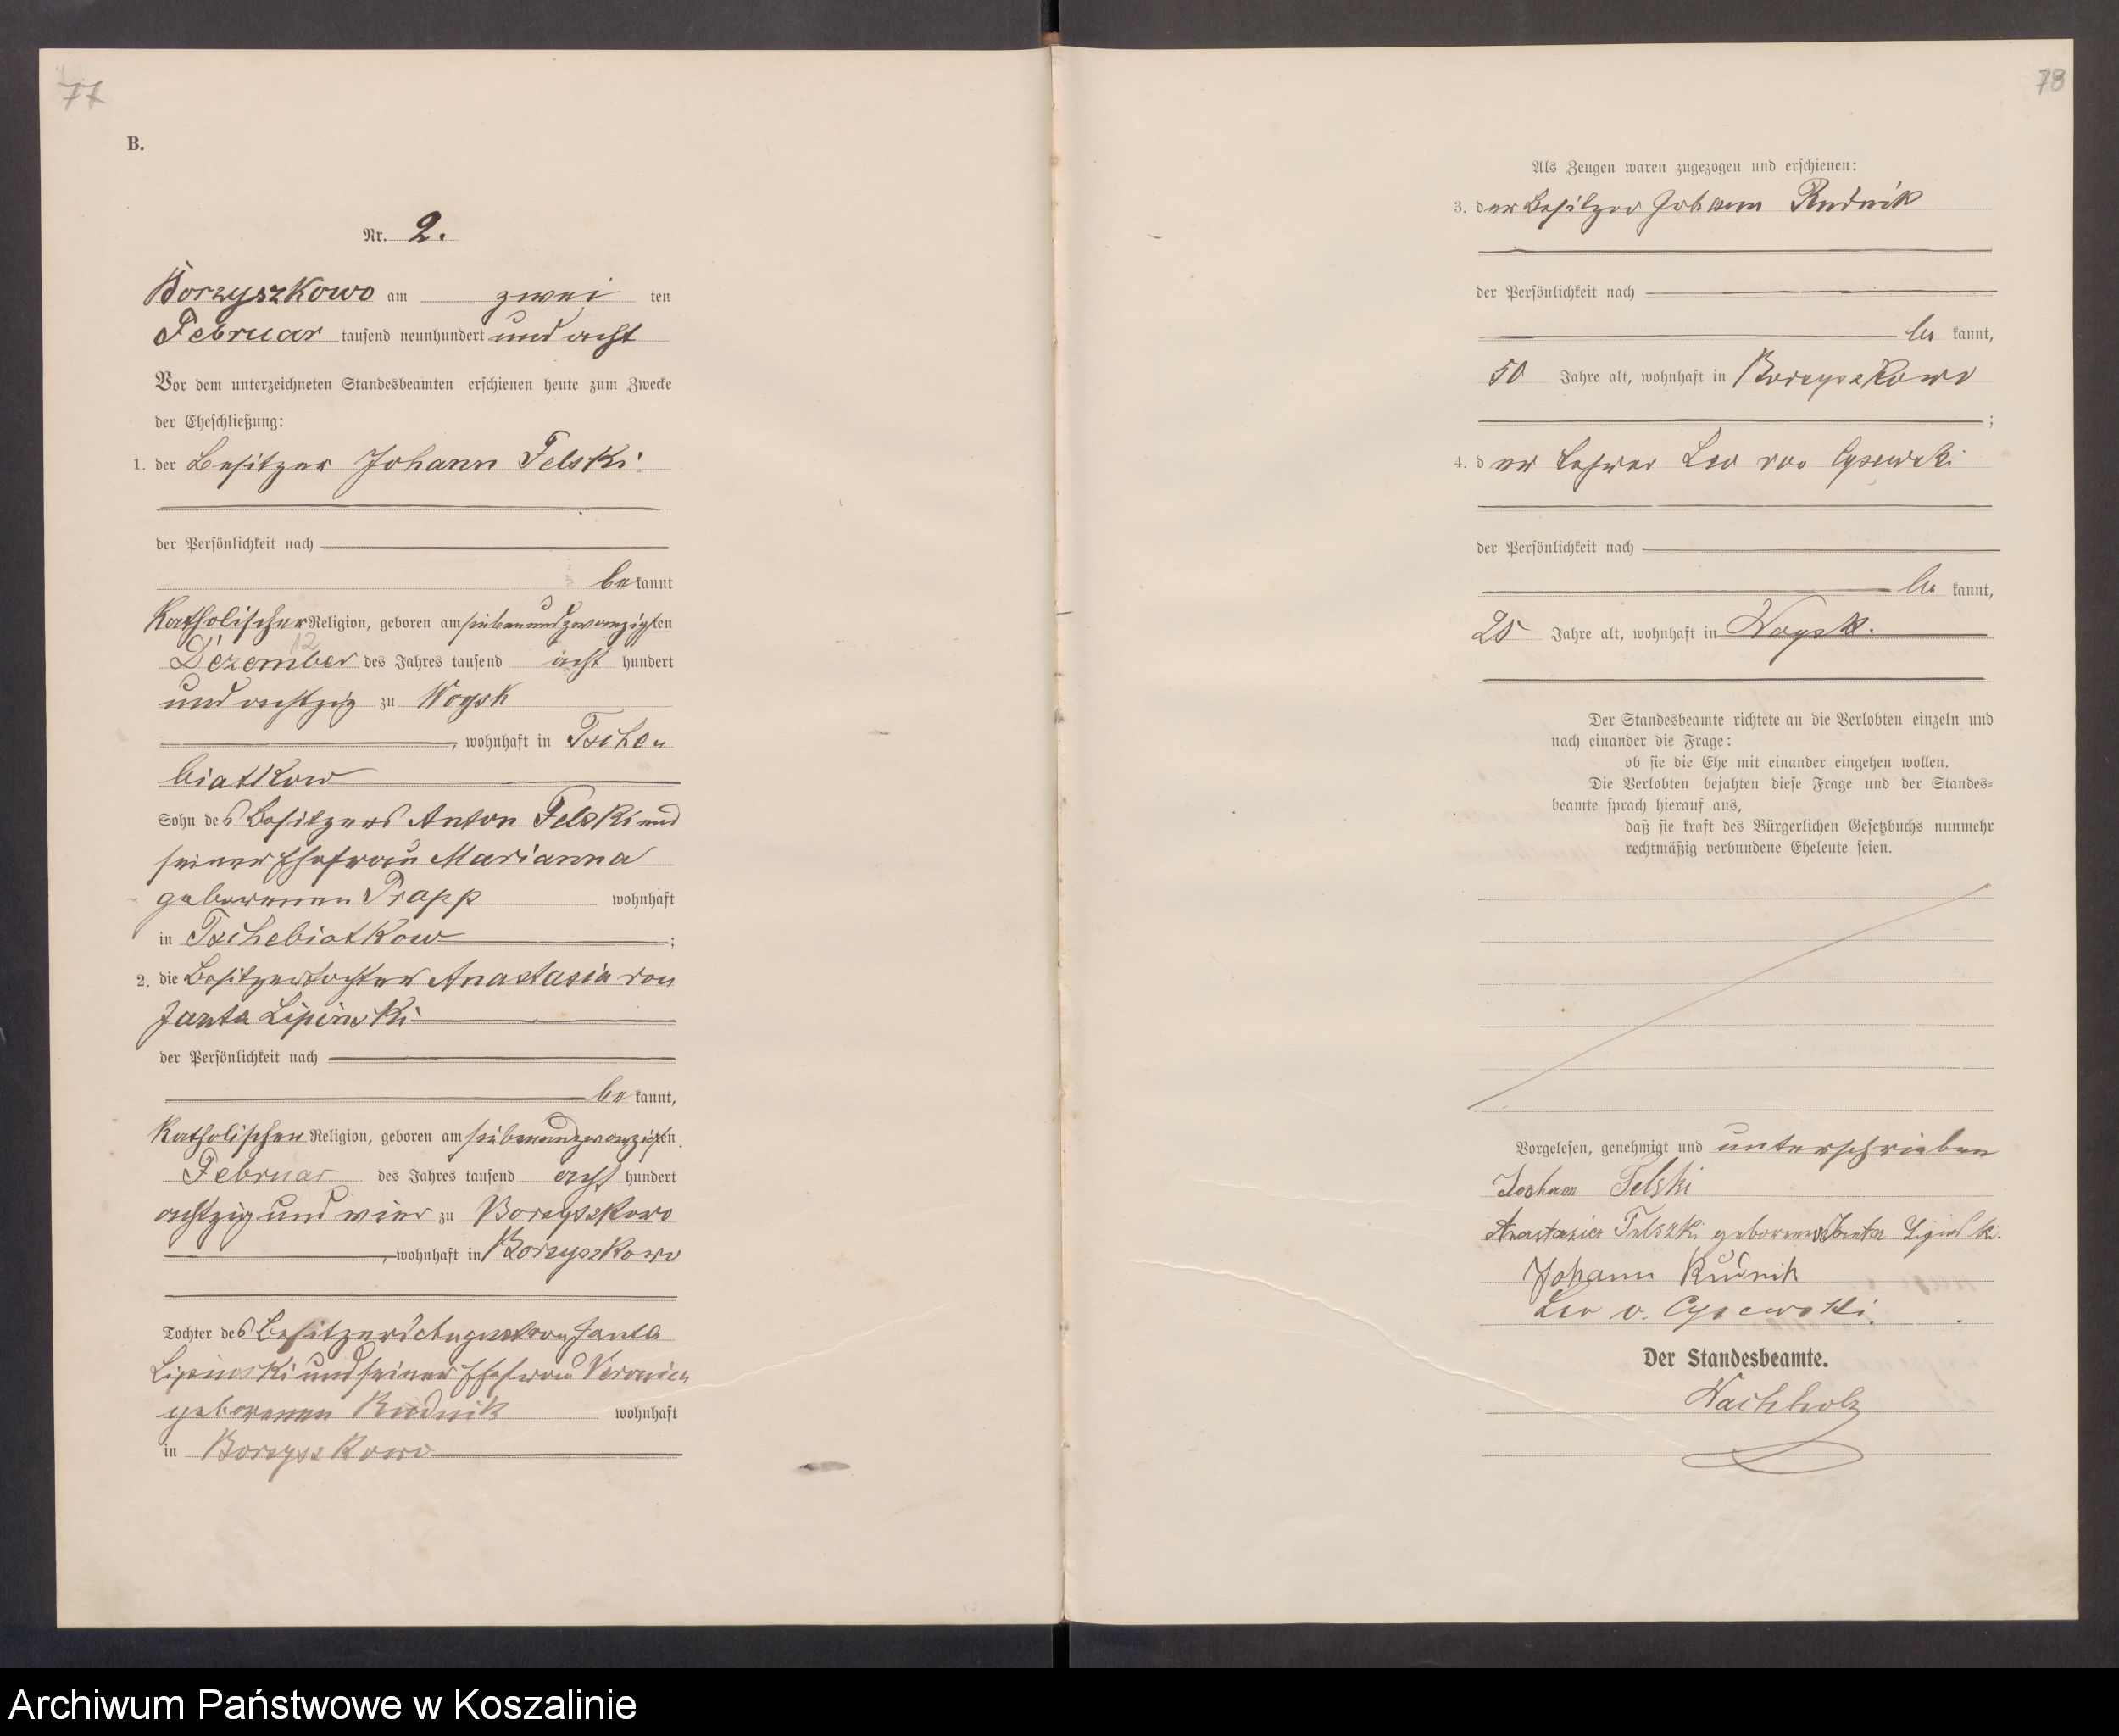 77
B.
Nr. 2.
Borzyszkowo am zwei ten
Februar tausend neunhundert und acht
Vor dem unterzeichneten Standesbeamten erschienen heute zum Zwecke
der Eheschließung:
1. der Besitzer Johann Felski
der Persönlichkeit nach
be kannt
Katholischer Religion, geboren am siebenundzwanzigsten
12
Dezember des Jahres tausend acht hundert
und achtzig zu Woysk
, wohnhaft in Tsche
biatkow
Sohn des Besitzers Anton Felski und
seiner Ehefrau Marianna
geborenen Prapp wohnhaft
in Tschebiatkow ;
2. die Besitzertochter Anastasia von
Janta Lipinski
der Persönlichkeit nach
be kannt,
Katholischer Religion, geboren am siebenundzwanzigsten
Februar des Jahres tausend acht hundert
achtzig und vier zu Borzyszkowo
, wohnhaft in Borzyszkowo
Tochter des Besitzers August von Janta
Lipinski und seiner Ehefrau Veronica
geborenen Rudnik wohnhaft
in Borzyszkowo
78
Als Zeugen waren zugezogen und erschienen:
3. der Besitzer Johann Rudnik
der Persönlichkeit nach
be kannt,
50 Jahre alt, wohnhaft in Borzyszkowo
;
4. der Lehrer Leo von Cysewski
der Persönlichkeit nach
be kannt,
25 Jahre alt, wohnhaft in Woysk.
Der Standesbeamte richtete an die Verlobten einzeln und
nach einander die Frage:
ob sie die Ehe mit einander eingehen wollen.
Die Verlobten bejahten diese Frage und der Standes-
beamte sprach hierauf aus,
daß sie kraft des Bürgerlichen Gesetzbuchs nunmehr
rechtmäßig verbundene Eheleute seien.
Vorgelesen, genehmigt und unterschrieben
Johann Felski
Anastasia Felszki geborene v Janta Lipinski.
Johann Rudnik
Leo v. Cysewski.
Der Standesbeamte.
Wachholz
Archiwum Państwowe w Koszalinie